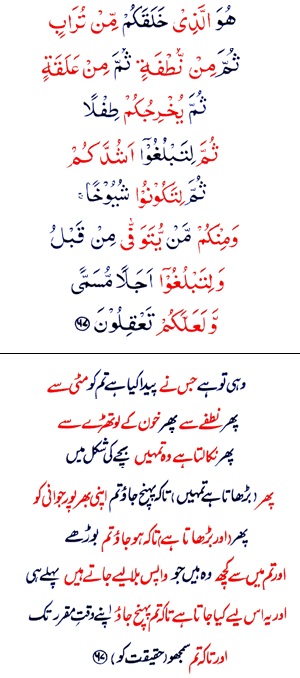 هُوَ الَّذِىْ خَلَقَكُمْ مِّنْ تُرَابٍ
ثُمَّ مِنْ نُّطْفَةٍ ثُمَّ مِنْ عَلَقَةٍ
ثُمَّ يُخْرِجُكُمْ طِفْلًا
ثُمَّ لِتَبْلُغُوْۤا اَشُدَّكُمْ
ثُمَّ لِتَكُوْنُوْا شُيُوْخًا ۚ
وَمِنْكُمْ مَّنْ يُّتَوَفّٰى مِنْ قَبْلُ
وَلِتَبْلُغُوْۤا اَجَلًا مُّسَمًّى
وَّلَعَلَّكُمْ تَعْقِلُوْنَ ﴿۶۷﴾
وہی تو ہے جس نے پیدا کیا ہے تم کو مٹی سے
پھر نطفے سے پھر خون کے لوتھڑے سے
پھر نکالتا ہے وہ تمہیں بچے کی شکل میں
پھر (بڑھاتا ہے تمہیں) تاکہ پہنچ جاؤ تم اپنی بھرپور جوانی کو
پھر (اور بڑھاتا ہے) تاکہ ہو جاؤ تم بوڑھے
اور تم میں سے کچھ وہ ہیں جو واپس بلا لیے جاتے ہیں پہلے ہی
اور یہ اس لیے کیا جاتا ہے تاکہ تم پہنچ جاؤ اپنے وقتِ مقرر تک
اور تاکہ تم سمجھو (حقیقت کو) ﴿۶۷﴾